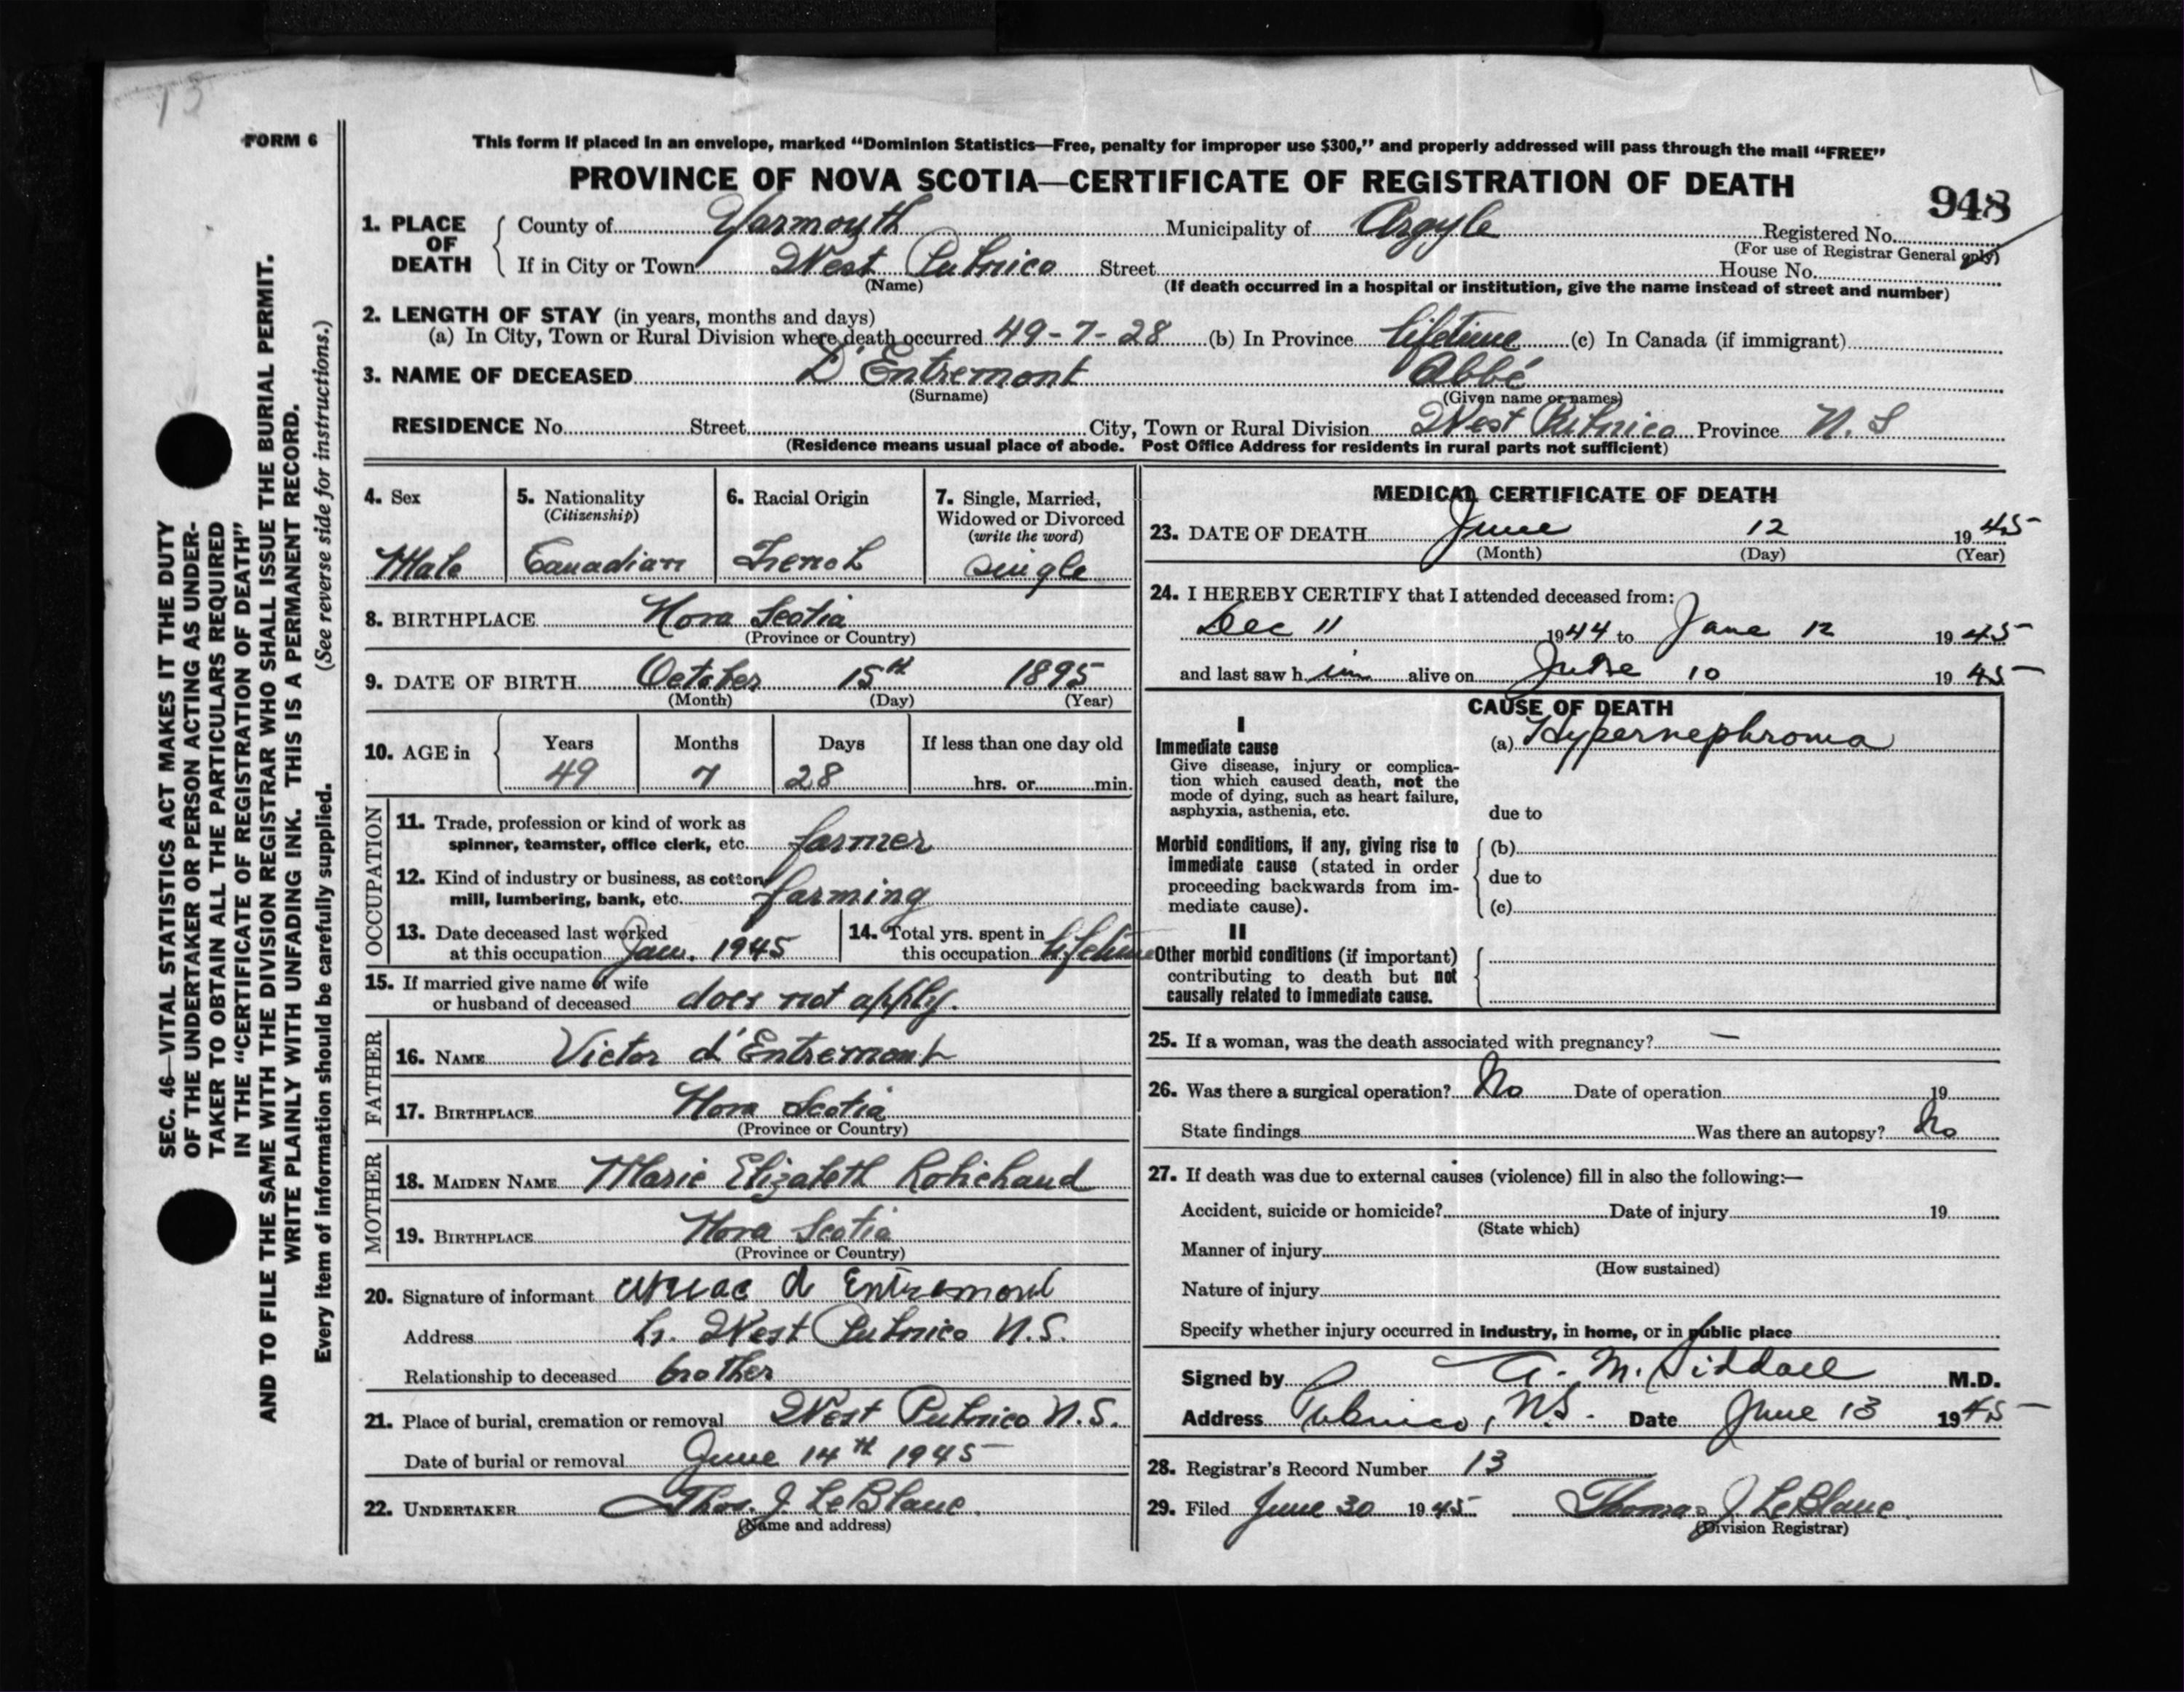 13
FORM 6
This form if placed in an envelope, marked "Dominion Statistics—Free, penalty for improper use $300," and properly addressed will pass through the mail "FREE"
PROVINCE OF NOVA SCOTIA—CERTIFICATE OF REGISTRATION OF DEATH
948
1. PLACE OF DEATH County of Yarmouth Municipality of Argyle Registered No.
(For use of Registrar General only)
If in City or Town West Pubnico Street House No.
(Name) (If death occurred in a hospital or institution, give the name instead of street and number)
2. LENGTH OF STAY (in years, months and days)
(a) In City, Town or Rural Division where death occurred 49-7-28 (b) In Province lifetime (c) In Canada (if immigrant)
3. NAME OF DECEASED D'Entremont Abbé
(Surname) (Given name or names)
RESIDENCE No. Street City, Town or Rural Division West Pubnico Province N.S
(Residence means usual place of abode. Post Office Address for residents in rural parts not sufficient)
4. Sex
Male
5. Nationality
(Citizenship)
Canadian
6. Racial Origin
French
7. Single, Married,
Widowed or Divorced
(write the word)
single
8. BIRTHPLACE Nova Scotia
(Province or Country)
9. DATE OF BIRTH October 15th 1895
(Month) (Day) (Year)
10. AGE in Years Months Days If less than one day old
49 7 28 hrs. or min.
OCCUPATION
11. Trade, profession or kind of work as
spinner, teamster, office clerk, etc. farmer
12. Kind of industry or business, as cotton
mill, lumbering, bank, etc. farming
13. Date deceased last worked
at this occupation Jan. 1945
14. Total yrs. spent in
this occupation lifetime
15. If married give name of wife
or husband of deceased does not apply.
FATHER
16. NAME Victor d'Entremont
17. BIRTHPLACE Nova Scotia
(Province or Country)
MOTHER
18. MAIDEN NAME Marie Elizabeth Robichaud
19. BIRTHPLACE Nova Scotia
(Province or Country)
20. Signature of informant d Entremont
Address Lr. West Pubnico N.S.
Relationship to deceased brother
21. Place of burial, cremation or removal West Pubnico N.S.
Date of burial or removal June 14th 1945
22. UNDERTAKER Thos. J. LeBlanc.
(Name and address)
MEDICAL CERTIFICATE OF DEATH
23. DATE OF DEATH June 12 1945
(Month) (Day) (Year)
24. I HEREBY CERTIFY that I attended deceased from:
Dec 11 1944 to June 12 1945
and last saw him alive on June 10 1945
CAUSE OF DEATH
I
Immediate cause
Give disease, injury or complica-
tion which caused death, not the
mode of dying, such as heart failure,
asphyxia, asthenia, etc.
(a) Hypernephroma
due to
Morbid conditions, if any, giving rise to
immediate cause (stated in order
proceeding backwards from im-
mediate cause).
(b)
due to
(c)
II
Other morbid conditions (if important)
contributing to death but not
causally related to immediate cause.
25. If a woman, was the death associated with pregnancy? —
26. Was there a surgical operation? No Date of operation 19
State findings Was there an autopsy? No
27. If death was due to external causes (violence) fill in also the following:—
Accident, suicide or homicide? Date of injury 19
(State which)
Manner of injury
(How sustained)
Nature of injury
Specify whether injury occurred in industry, in home, or in public place
Signed by A. M. Siddall M.D.
Address Pubnico, N.S. Date June 13 1945
28. Registrar's Record Number 13
29. Filed June 30 1945 Thomas J. LeBlanc.
(Division Registrar)
SEC. 46—VITAL STATISTICS ACT MAKES IT THE DUTY
OF THE UNDERTAKER OR PERSON ACTING AS UNDER-
TAKER TO OBTAIN ALL THE PARTICULARS REQUIRED
IN THE "CERTIFICATE OF REGISTRATION OF DEATH"
AND TO FILE THE SAME WITH THE DIVISION REGISTRAR WHO SHALL ISSUE THE BURIAL PERMIT.
WRITE PLAINLY WITH UNFADING INK. THIS IS A PERMANENT RECORD.
Every item of information should be carefully supplied. (See reverse side for instructions.)